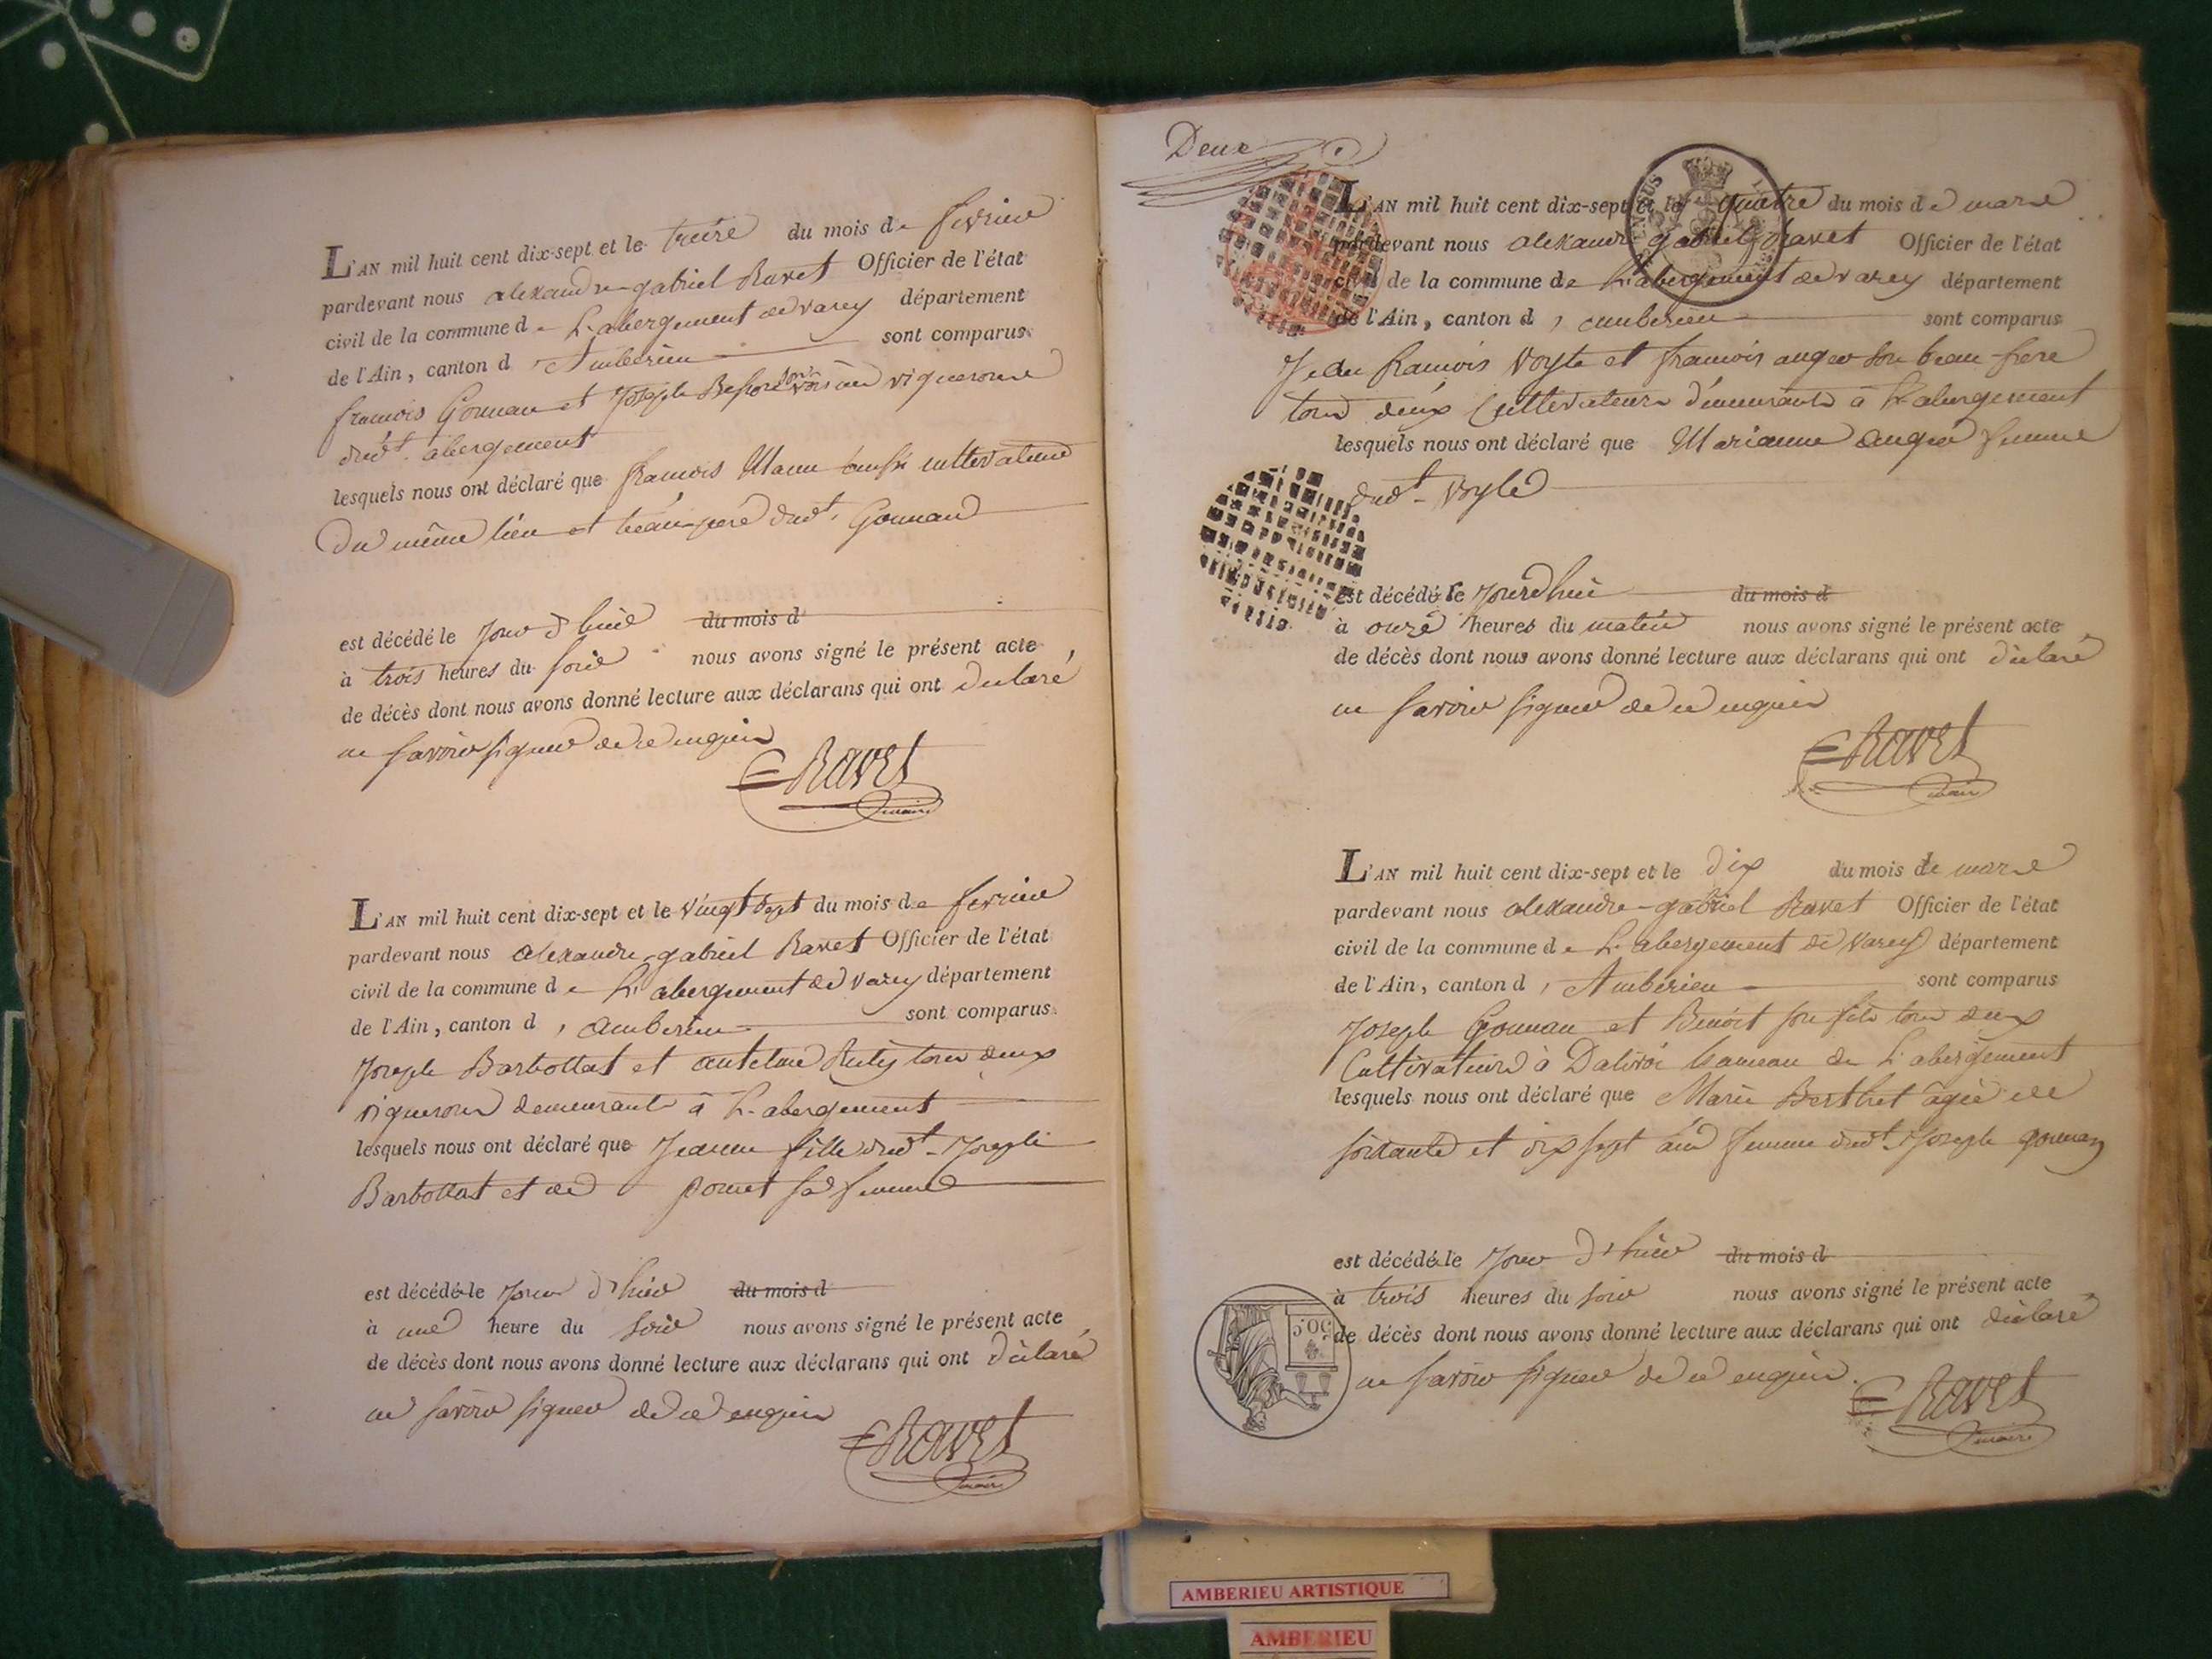 L'AN mil huit cent dix-sept et le treize du mois de fevrier
pardevant nous alexandre gabriel Ravet Officier de l'état
civil de la commune de L'abergement de varey département
de l'Ain, canton d'Amberieu sont comparus
francois Gonnan et Joseph son voisin vignerons
dudt. abergement
lesquels nous ont déclaré que francois aussi cultivateur
du même lieu et beau-père dudt. Gonnand
est décédé le jour d'huid du mois d
à trois heures du soir nous avons signé le présent acte
de décès dont nous avons donné lecture aux déclarans qui ont déclaré
ne savoir signer de ce enquis
Ravet
maire
L'AN mil huit cent dix-sept et le vingt sept du mois de fevrier
pardevant nous alexandre gabriel Ravet Officier de l'état
civil de la commune de L'abergement de varey département
de l'Ain, canton d'amberieu sont comparus
Joseph Barbollat et antelme tous deux
vignerons demeurants à L'abergement
lesquels nous ont déclaré que Jeanne fille dudt. Joseph
Barbollat et de ponet sa femme
est décédé le jour d'huid du mois d
à une heure du soir nous avons signé le présent acte
de décès dont nous avons donné lecture aux déclarans qui ont déclaré
ne savoir signer de ce enquis
Ravet
maire
Deux
L'AN mil huit cent dix-sept et le quatre du mois de mars
pardevant nous alexandre gabriel Ravet Officier de l'état
civil de la commune de L'abergement de varey département
de l'Ain, canton d'amberieu sont comparus
Jean francois Voyle et francois auger son beau-frere
tous deux cultivateurs demeurants à L'abergement
lesquels nous ont déclaré que Marianne auger femme
dudt. Voyle
est décédé le jourdhui du mois d
à onze heures du matin nous avons signé le présent acte
de décès dont nous avons donné lecture aux déclarans qui ont déclaré
ne savoir signer de ce enquis
Ravet
maire
L'AN mil huit cent dix-sept et le dix du mois de mars
pardevant nous alexandre-gabriel Ravet Officier de l'état
civil de la commune de L'abergement de Varey département
de l'Ain, canton d'Amberieu sont comparus
Joseph Gonnan et Benoit son fils tous deux
Cultivateurs à Dalivoi hameau de L'abergement
lesquels nous ont déclaré que Marie Berthet agée de
soixante et dix sept ans femme dudt. Joseph gonnan
est décédé le jour d'huid du mois d
à trois heures du soir nous avons signé le présent acte
50c
de décès dont nous avons donné lecture aux déclarans qui ont déclaré
ne savoir signer de ce enquis.
Ravet
maire
AMBERIEU ARTISTIQUE
AMBERIEU